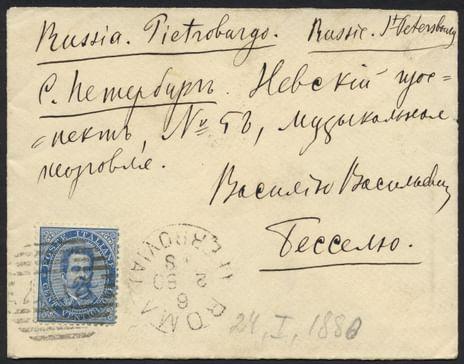 Russia. Pietroburgo. Russie. St Petersburg
С. Петербургъ. Невскій прос-
=пектъ, № 53, музыкальная
торговля.
Василію Васильевичу
Бесселю.
POSTE ITALIANE
ROMA
FERROVIA
24, I, 1880